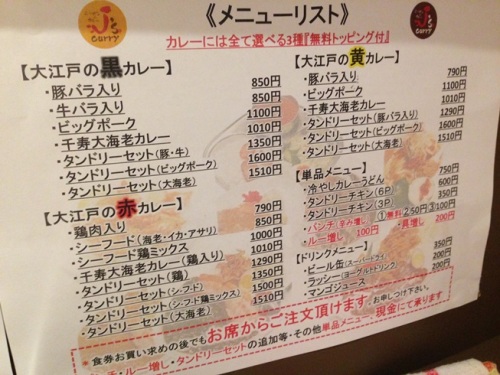 J's curry
《メニューリスト》
J's curry
カレーには全て選べる3種『無料トッピング付』
【大江戸の黒カレー】
・豚バラ入り 850円
・牛バラ入り 850円
・ビッグポーク 1100円
・千寿大海老カレー 1010円
・タンドリーセット(豚・牛) 1350円
・タンドリーセット(ビッグポーク) 1600円
・タンドリーセット(大海老) 1510円
【大江戸の赤カレー】
・鶏肉入り 790円
・シーフード(海老・イカ・アサリ) 850円
・シーフード鶏ミックス 1000円
・千寿大海老カレー(鶏入り) 1010円
・タンドリーセット(鶏) 1290円
・タンドリーセット(シーフード) 1350円
・タンドリーセット(シーフード鶏ミックス) 1500円
・タンドリーセット(大海老) 1510円
【大江戸の黄カレー】
・豚バラ入り 790円
・ビッグポーク 1100円
・千寿大海老カレー 1010円
・タンドリーセット(豚バラ入り) 1290円
・タンドリーセット(ビッグポーク) 1600円
・タンドリーセット(大海老) 1510円
【単品メニュー】
・冷やしカレーうどん 750円
・タンドリーチキン(6P) 600円
・タンドリーチキン(3P) 350円
・パンチ(辛み増し) ①無料 2,50円 ③100円
・ルー増し 100円 ・具増し 200円
【ドリンクメニュー】
・ビール缶(スーパードライ) 350円
・ラッシー(ヨーグルトドリンク) 200円
・マンゴジュース 200円
食券お買い求めの後でもお席からご注文頂けます。お申しつけ下さい。
チ・ルー増し・タンドリーセットの追加等・その他単品メニュー現金にて承ります